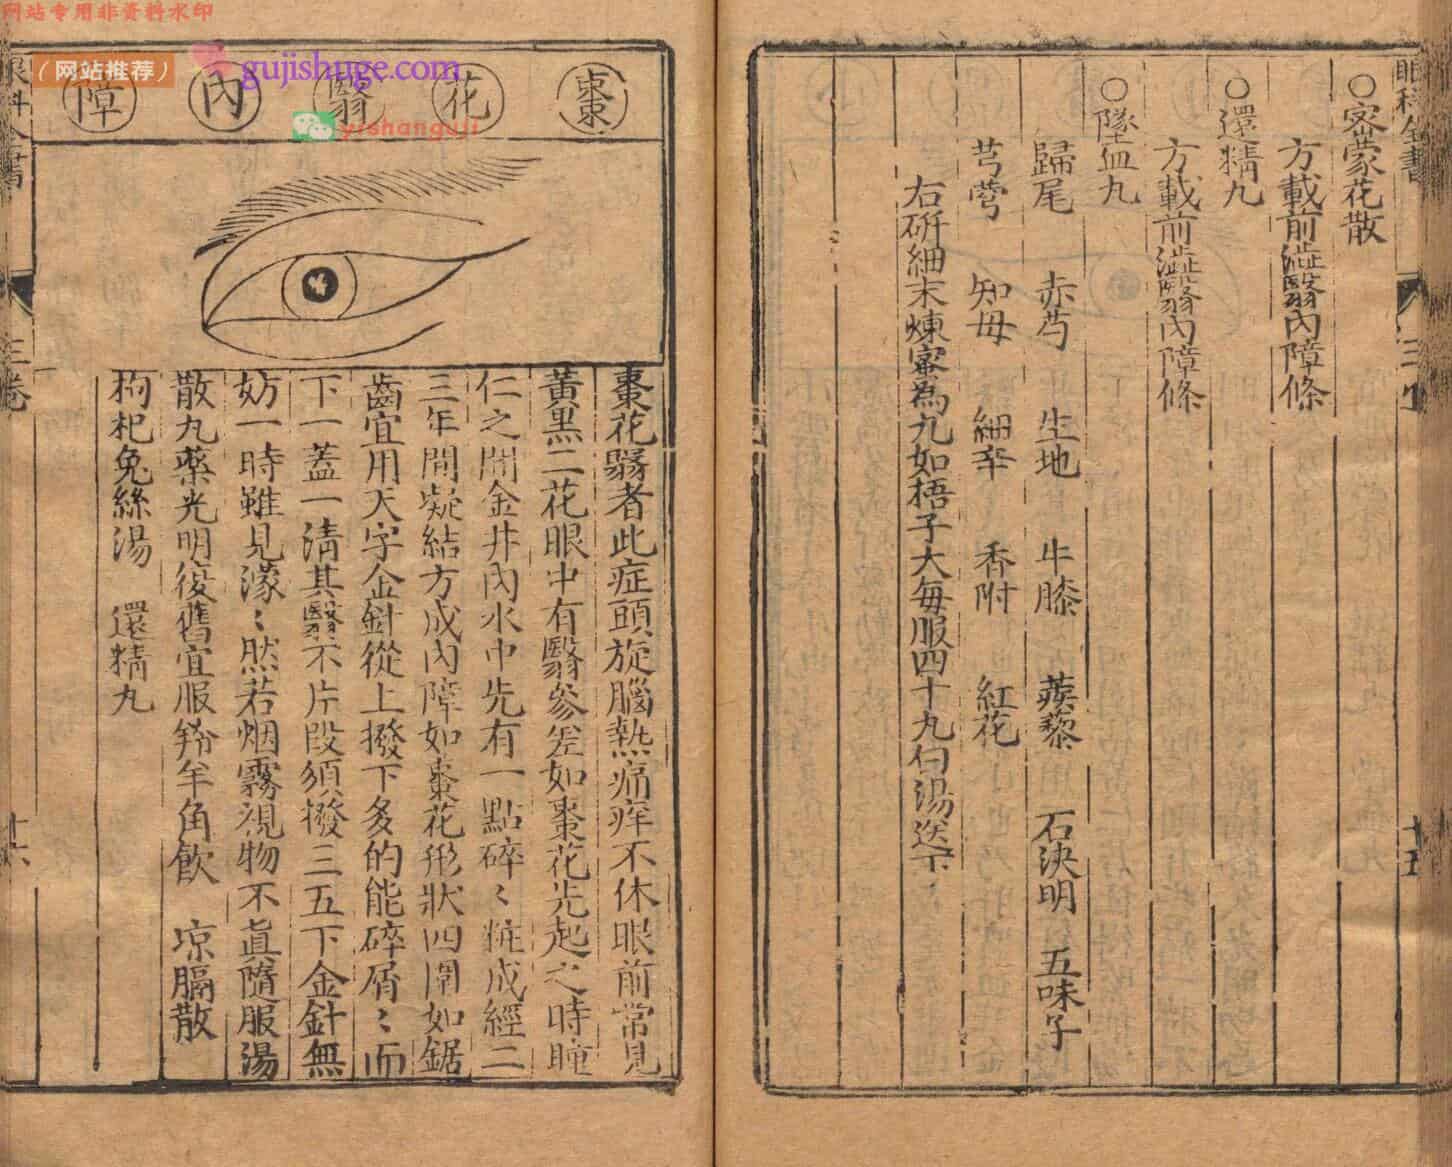 网站专用非资料水印
(网站推荐)
gujishuge.com
yishanguji
眼科全書
三卷
十五
○密蒙花散
方載前澁翳內障條
○還精丸
方載前澁翳內障條
○墜血丸
歸尾 赤芍 生地 牛膝 蒺藜 石決明 五味子
芎藭 知母 細辛 香附 紅花
右研細末煉蜜為丸如梧子大每服四十丸白湯送下
棗花翳內障
棗花翳者此症頭旋腦熱痛痒不休眼前常見
黃黑二花眼中有翳參差如棗花先起之時瞳
仁之間金井內水中先有一點碎〻粧成經二
三年間凝結方成內障如棗花形狀四圍如鋸
齒宜用天字金針從上撥下多的能碎屑〻而
下一蓋一清其翳不片段須撥三五下金針無
妨一時雖見濛〻然若烟霧視物不真隨服湯
散丸藥光明復舊宜服羚羊角飲 凉膈散
枸杞兔絲湯 還精丸
眼科全書
三卷
十六